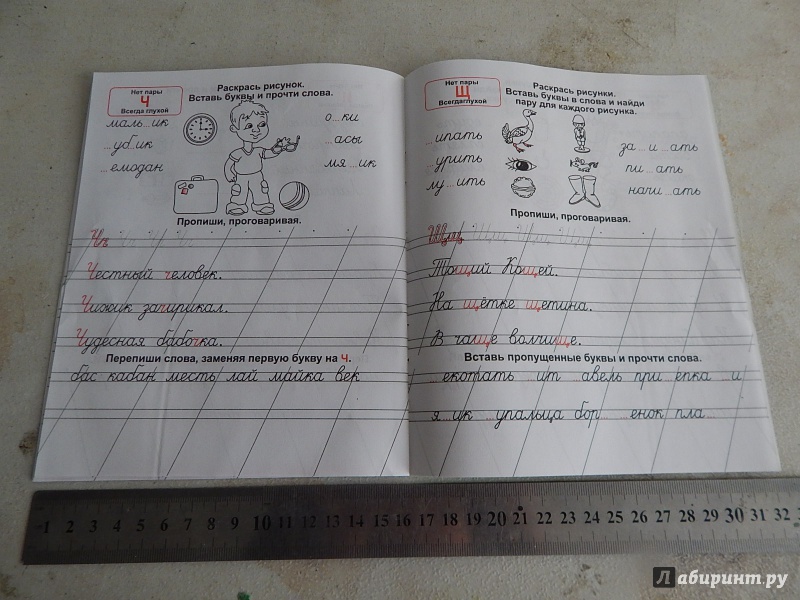 Нет пары
Ч
Всегда глухой
Раскрась рисунок.
Вставь буквы и прочти слова.
маль...ик
...уб...ик
...емодан
о...ки
...асы
мя...ик
Пропиши, проговаривая.
Чч
Честный человек.
Чижик зачирикал.
Чудесная бабочка.
Перепиши слова, заменяя первую букву на Ч.
бас кабан месть лай майка век
Нет пары
Щ
Всегдаглухой
Раскрась рисунки.
Вставь буквы в слова и найди
пару для каждого рисунка.
...ипать
...урить
лу...ить
за...и...ать
пи...ать
начи...ать
Пропиши, проговаривая.
Щщ Щщ Щщ Щщ
Тощий Кощей.
На щётке щетина.
В чаще волчище.
Вставь пропущенные буквы и прочти слова.
...екотать ...ит ...авель при...епка ...и
я...ик ...упальца бор... ...енок пла...
1 2 3 4 5 6 7 8 9 10 11 12 13 14 15 16 17 18 19 20 21 22 23 24 25 26 27 28 29 30 31 32
Лабиринт.ру